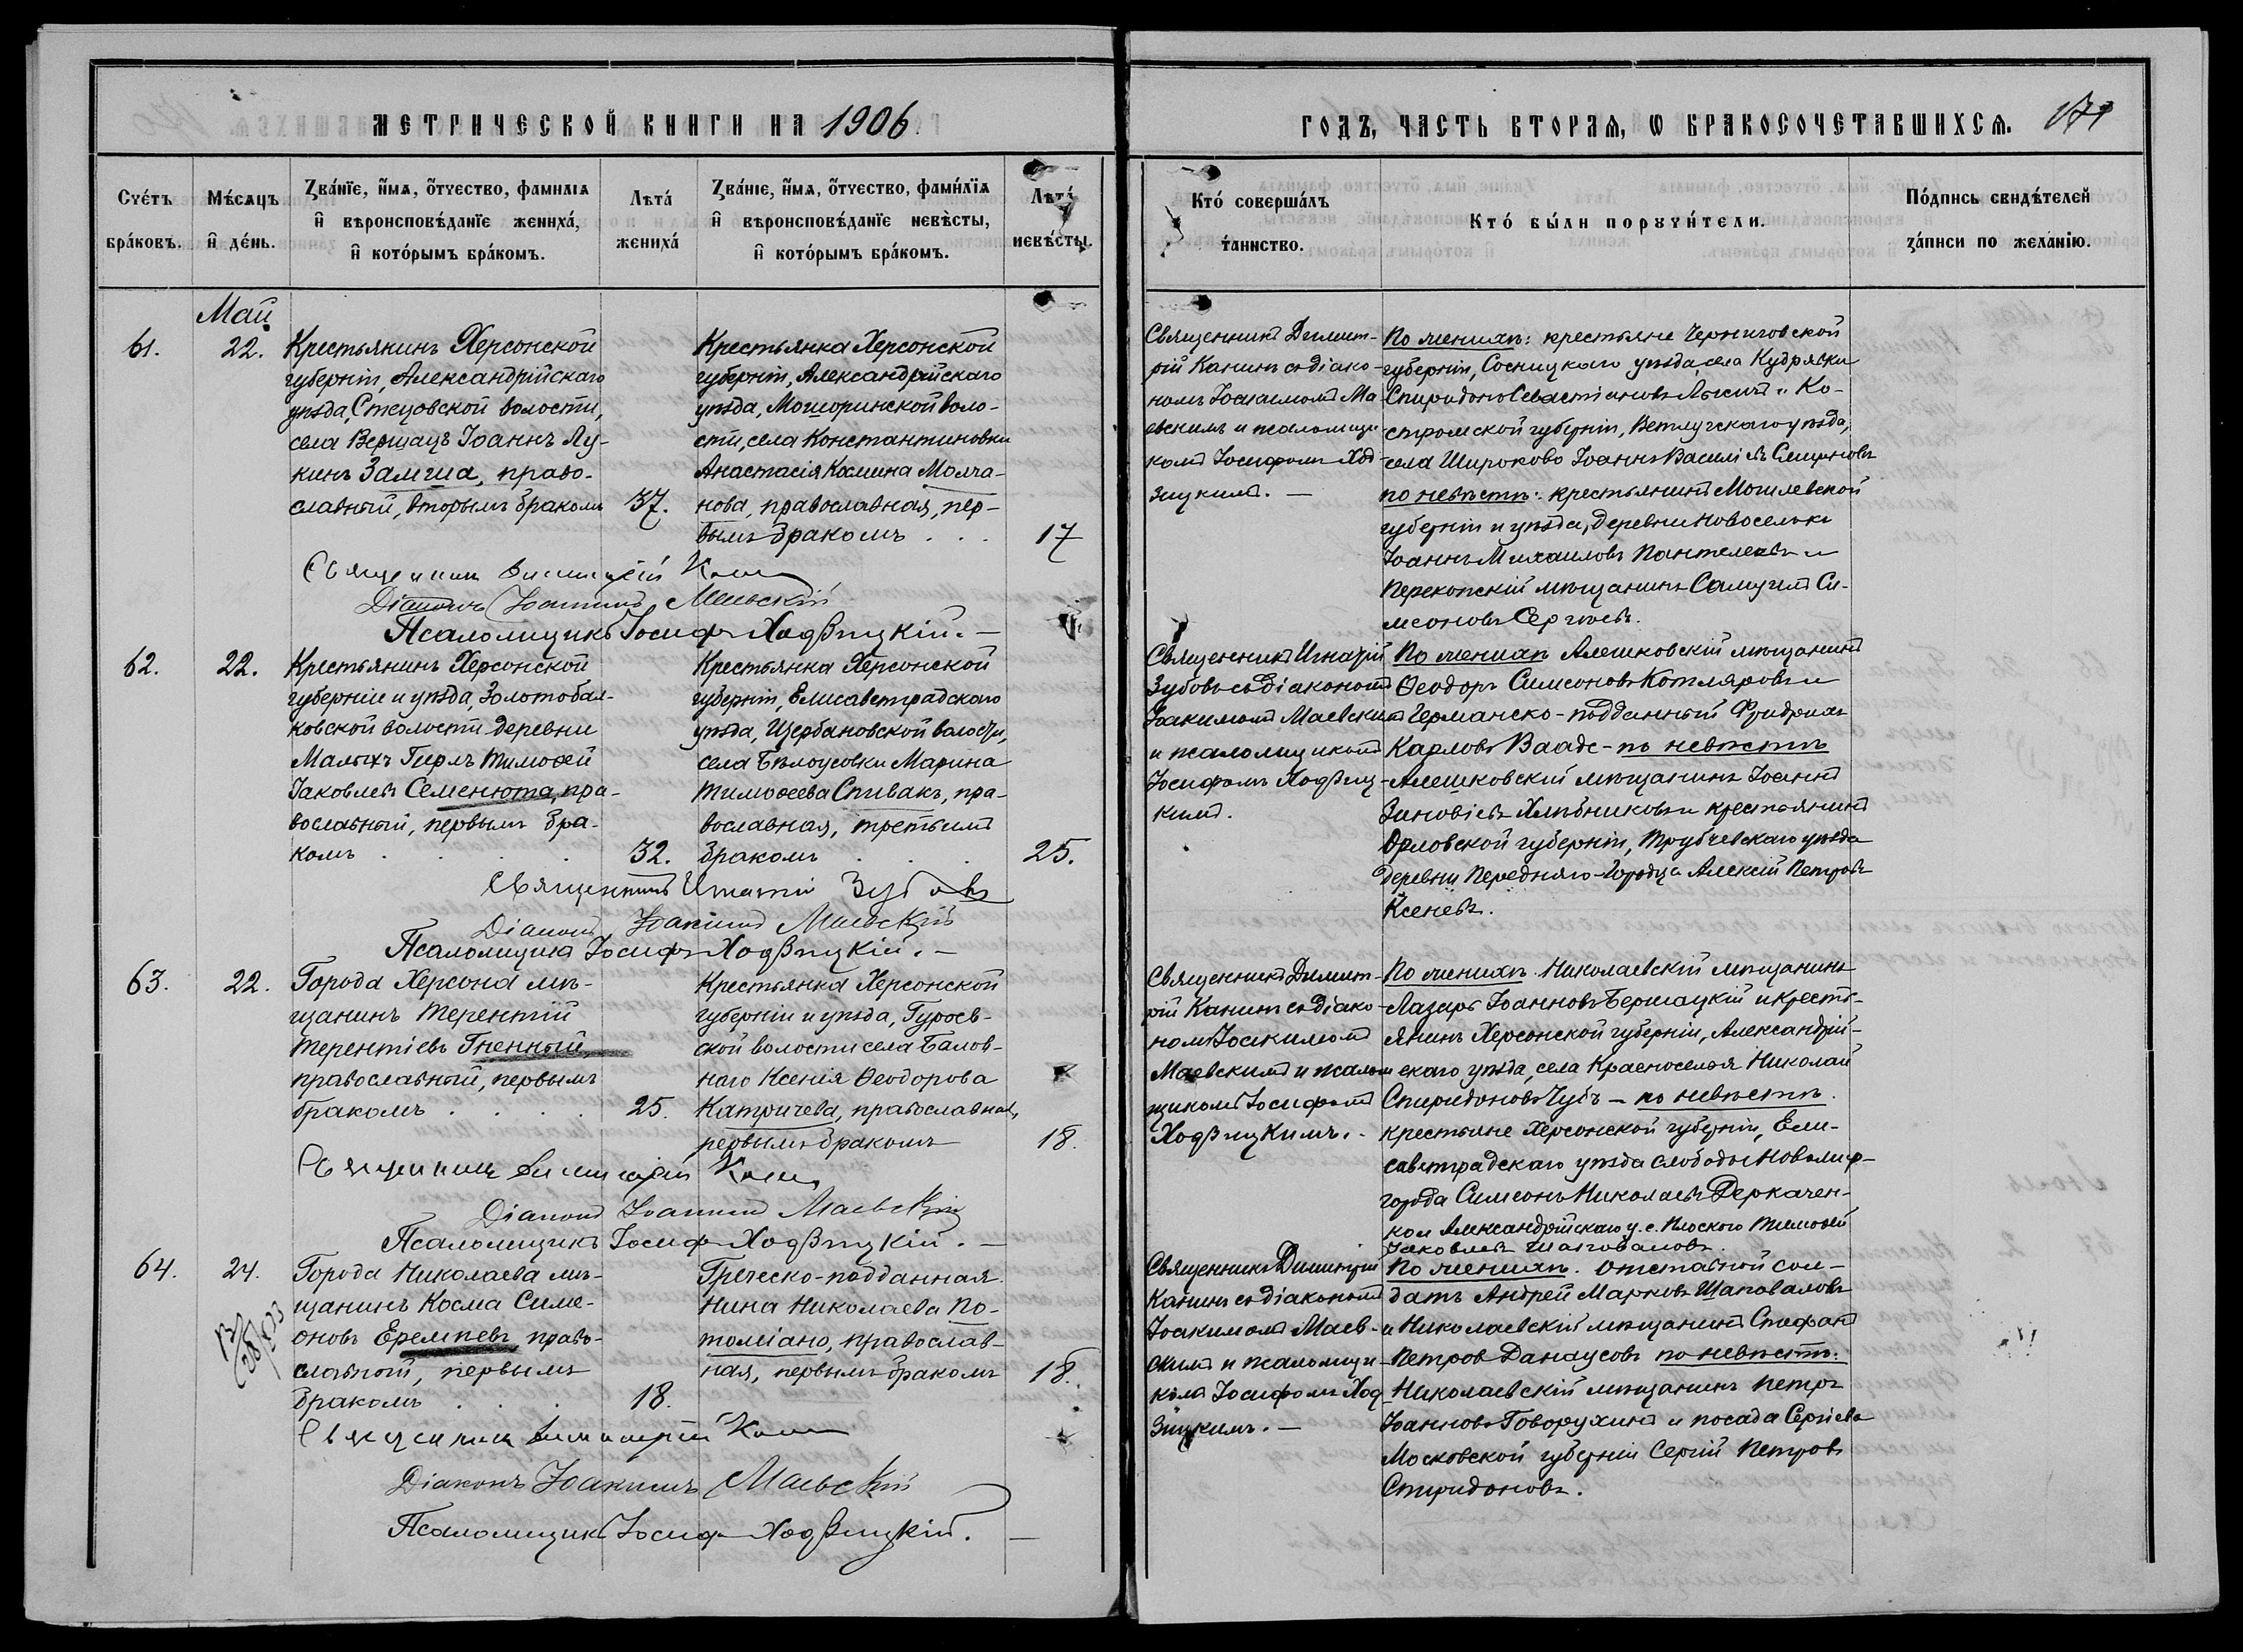 МЕТРИЧЕСКОЙ КНИГИ НА 1906
ГОДЪ, ЧАСТЬ ВТОРАЯ, Ѡ БРАКОСОЧЕТАВШИХСЯ.
171
Сче́тъ бра́ковъ.
Мѣ́сяцъ и де́нь.
Зва́нїе, и҆́мя, о҆́тчество, фамилїя
и҆ вѣроисповѣ́данїе жениха́,
и҆ кото́рымъ бра́комъ.
Лѣта́ жениха́
Зва́нїе, и҆́мя, о҆́тчество, фами́лїя
и҆ вѣроисповѣ́данїе невѣ́сты,
и҆ кото́рымъ бра́комъ.
Лѣта́ невѣ́сты.
Кто́ соверша́лъ та́инство.
Кто́ бы́ли поручи́тели.
По́дпись свидѣ́телей
за́писи по жела́нїю.
Май
61.
22.
Крестьянинъ Херсонской
губерніи, Александрійскаго
уѣзда, Стецовской волости,
села Вершацъ Іоаннъ Лу-
кинъ Замша, право-
славный, вторымъ бракомъ
37.
Крестьянка Херсонской
губерніи, Александрійскаго
уѣзда, Мошоринской воло-
сти, села Константиновки
Анастасія Космина Молча-
нова, православная, пер-
вымъ бракомъ . . .
17
Священникъ Димитрій Канинъ съ діако-
номъ Іоакимомъ Ма-
евскимъ и псаломщи-
комъ Іосифомъ Ход-
зицкимъ. —
По женихѣ: крестьяне Черниговской
губерніи, Сосницкаго уѣзда, села Кудряски
Спиридонъ Севастіановъ и Ко-
стромской губерніи, Ветлужскаго уѣзда,
села Широково Іоаннъ Василіевъ Смирновъ
по невѣстѣ: крестьянинъ Могилевской
губерніи и уѣзда, деревни Новоселокъ
Іоаннъ Михаиловъ Пантелеевъ и
Перекопскій мѣщанинъ Самуилъ Си-
меоновъ Сергѣевъ.
Священникъ Димитрій Канинъ
Діаконъ Іоакимъ Маевскій
Псаломщикъ Іосифъ Ходзицкій. —
62.
22.
Крестьянинъ Херсонской
губерніи и уѣзда, Золотобал-
ковской волости деревни
Малыхъ Гирлъ Тимоѳей
Іаковлевъ Семенюта, пра-
вославный, первымъ бра-
комъ . . . .
32.
Крестьянка Херсонской
губерніи, Елисаветградскаго
уѣзда, Щербановской волости,
села Бѣлоусовки Марина
Тимоѳеева Спивакъ, пра-
вославная, третьимъ
бракомъ . . .
25.
Священникъ Игнатій
Зубовъ съ діакономъ
Іоакимомъ Маевскимъ
и псаломщикомъ
Іосифомъ Ходзиц-
кимъ.
По женихѣ Алешковскій мѣщанинъ
Ѳеодоръ Симеоновъ Котляровъ и
Германско-подданный Фридрихъ
Карловъ Вааде - по невѣстѣ
Алешковскій мѣщанинъ Іоаннъ
Зиновіевъ Хлѣбниковъ и крестьянинъ
Орловской губерніи, Трубчевскаго уѣзда
деревни Передняго-Городца Алексій Петровъ
Ксеневъ.
Священникъ Игнатій Зубовъ
Діаконъ Іоакимъ Маевскій
Псаломщикъ Іосифъ Ходзицкій. —
63.
22.
Города Херсона мѣ-
щанинъ Терентій
Терентіевъ Гненный
православный, первымъ
бракомъ . . . .
25.
Крестьянка Херсонской
губерніи и уѣзда, Гуроев-
ской волости села Балов-
наго Ксенія Ѳеодорова
Катричева, православная,
первымъ бракомъ
18.
Священникъ Димит-
рій Канинъ съ діако-
номъ Іоакимомъ
Маевскимъ и псалом-
щикомъ Іосифомъ
Ходзицкимъ. -
По женихѣ Николаевскій мѣщанинъ
Лазарь Іоанновъ Бершацкій и кресть-
янинъ Херсонской губерніи, Александрій-
скаго уѣзда, села Красноселья Николай
Спиридоновъ Чубъ — по невѣстѣ.
крестьяне Херсонской губерніи, Ели-
саветградскаго уѣзда слободы Новомир-
города Симеонъ Николаевъ Деркачен-
ко и Александрійскаго у. с. Плоского Тимоѳей
Іаковлевъ Шаповаловъ.
Священникъ Димитрій Канинъ
Діаконъ Іоакимъ Маевскій
Псаломщикъ Іосифъ Ходзицкій. —
64.
24.
Города Николаева мѣ-
щанинъ Косма Симе-
оновъ Еремѣевъ право-
славный, первымъ
бракомъ . . .
18.
Греческо-подданная
Нина Николаева По-
томіано, православ-
ная, первымъ бракомъ
18.
Священникъ Димитрій
Канинъ съ діакономъ
Іоакимомъ Маев-
скимъ и псаломщи-
комъ Іосифомъ Ход-
зицкимъ. —
По женихѣ. Отставной сол-
датъ Андрей Марковъ Шаповаловъ
и Николаевскій мѣщанинъ Стефанъ
Петровъ Данаусовъ по невѣстѣ:
Николаевскій мѣщанинъ Петръ
Іоанновъ Говорухинъ и посада Сергіева
Московской губерніи Сергій Петровъ
Спиридоновъ.
Священникъ Димитрій Канинъ
Діаконъ Іоакимъ Маевскій
Псаломщикъ Іосифъ Ходзицкій. —